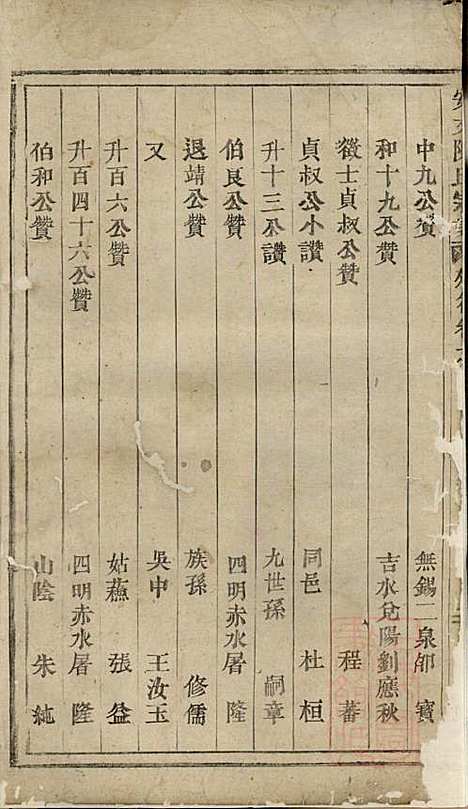 中九公贊 無錫二泉邵 寳
和十九公贊 吉水兌陽劉應秋
徵士貞叔公贊 程 蕃
貞叔公小讚 同邑 杜 桓
升十三公讚 九世孫 嗣章
伯良公贊 四明赤水屠 隆
退靖公贊 族孫 修儒
又 吳中 王汝玉
升百六公贊 姑蘓 張 益
升百四十六公贊 四明赤水屠 隆
伯和公贊 山陰 朱 純